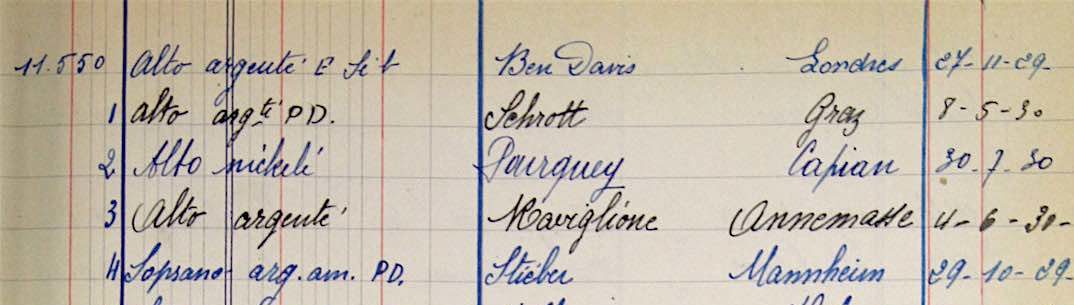 11.550 Alto argenté E Si b Ben Davis Londres 27-11-29-
1 alto argté P D. Schrott Graz 8-5-30
2 Alto nickelé Pourquey Capian 30-7-30
3 Alto argenté Maviglione Annemasse 4-6-30-
4 Soprano arg. am. P D. Stieber Mannheim 29-10-29-